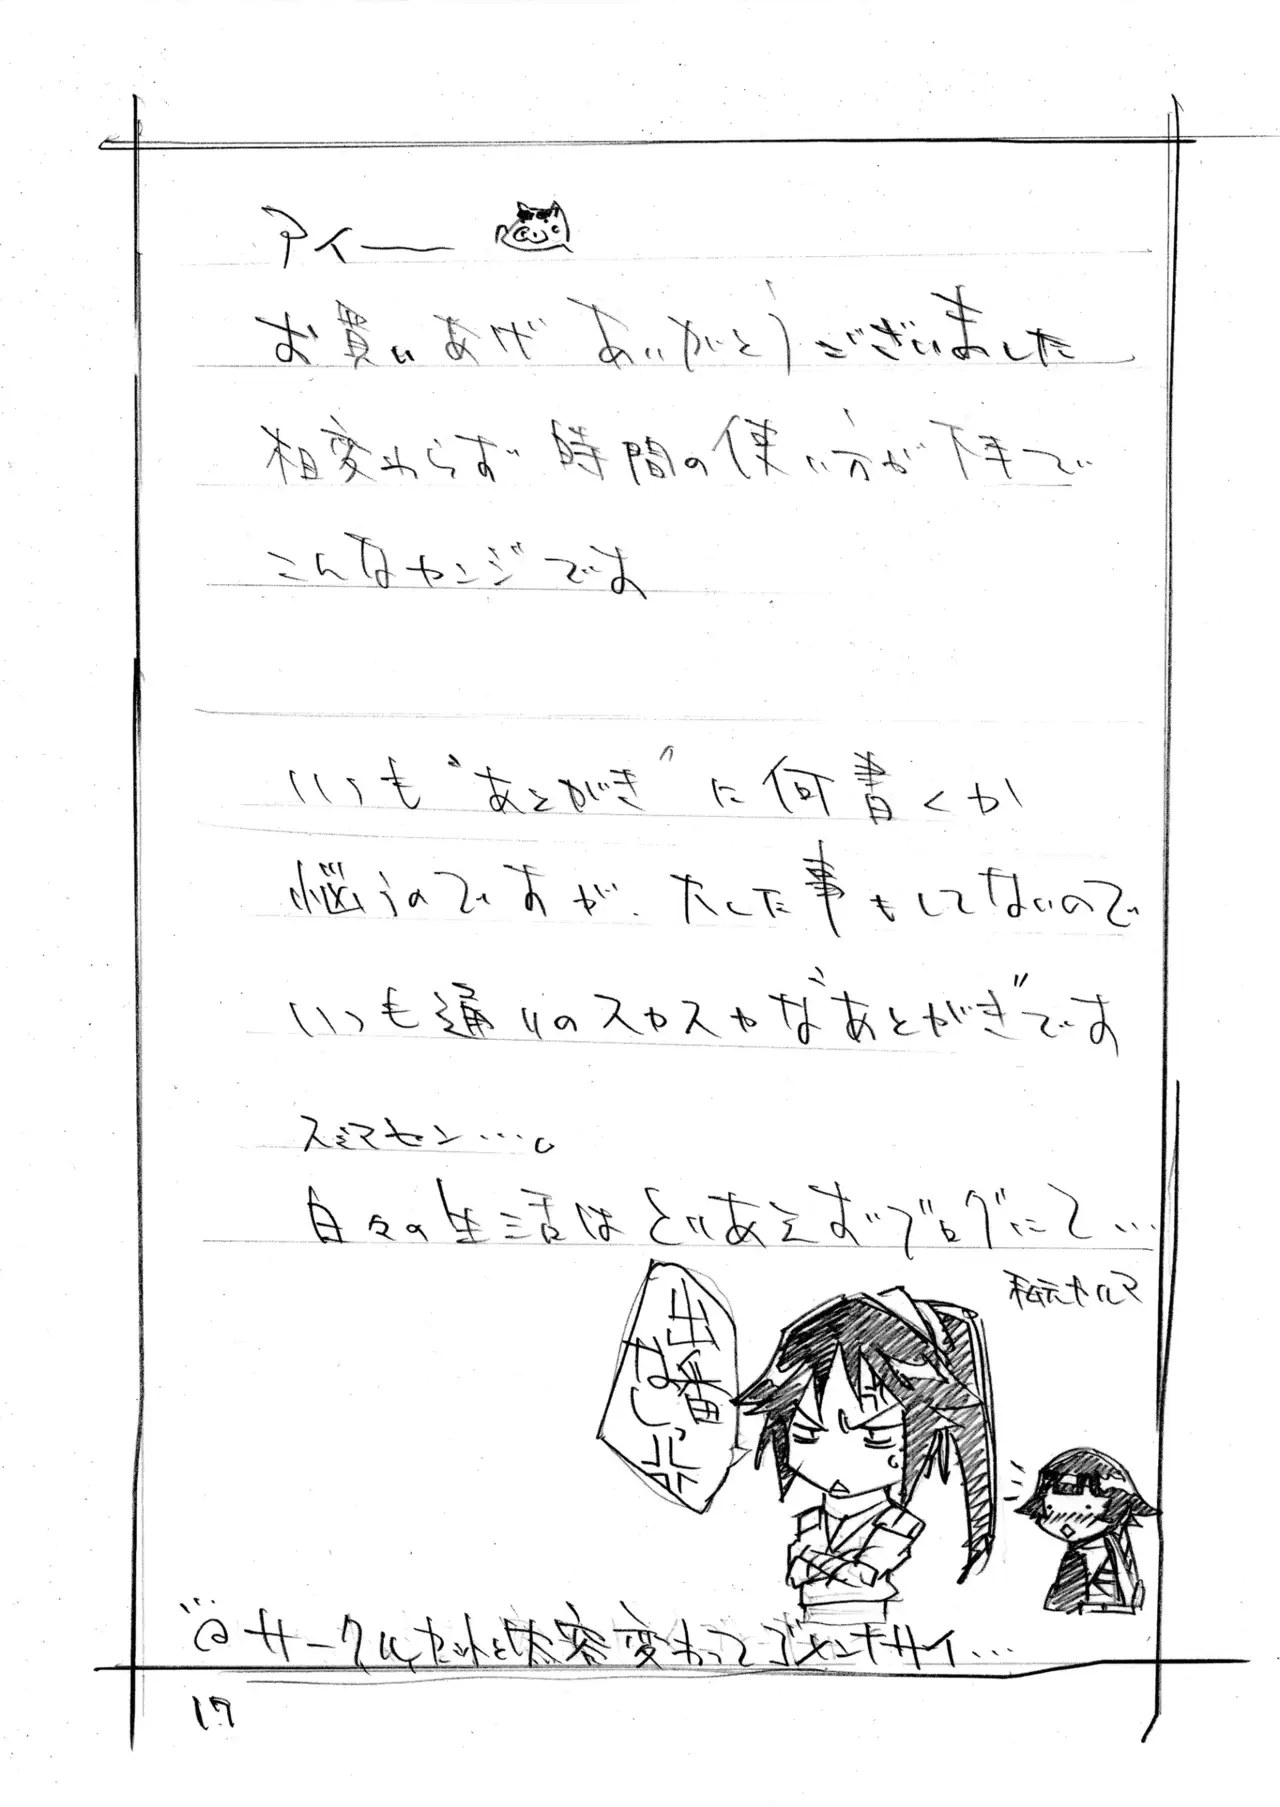 アイー
お買いあげ ありがとうございました
相変わらず 時間の使い方が下手で
こんなカンジです
いつも"あとがき"に何書くか
悩うのですが、たいした事もしてないので
いつも通りのスカスカな"あとがき"です
スミマセン…。
日々の生活はとりあえずブログにて…
カルマ
出番なしっ
サークルカットと内容変わってゴメンナサイ…
17